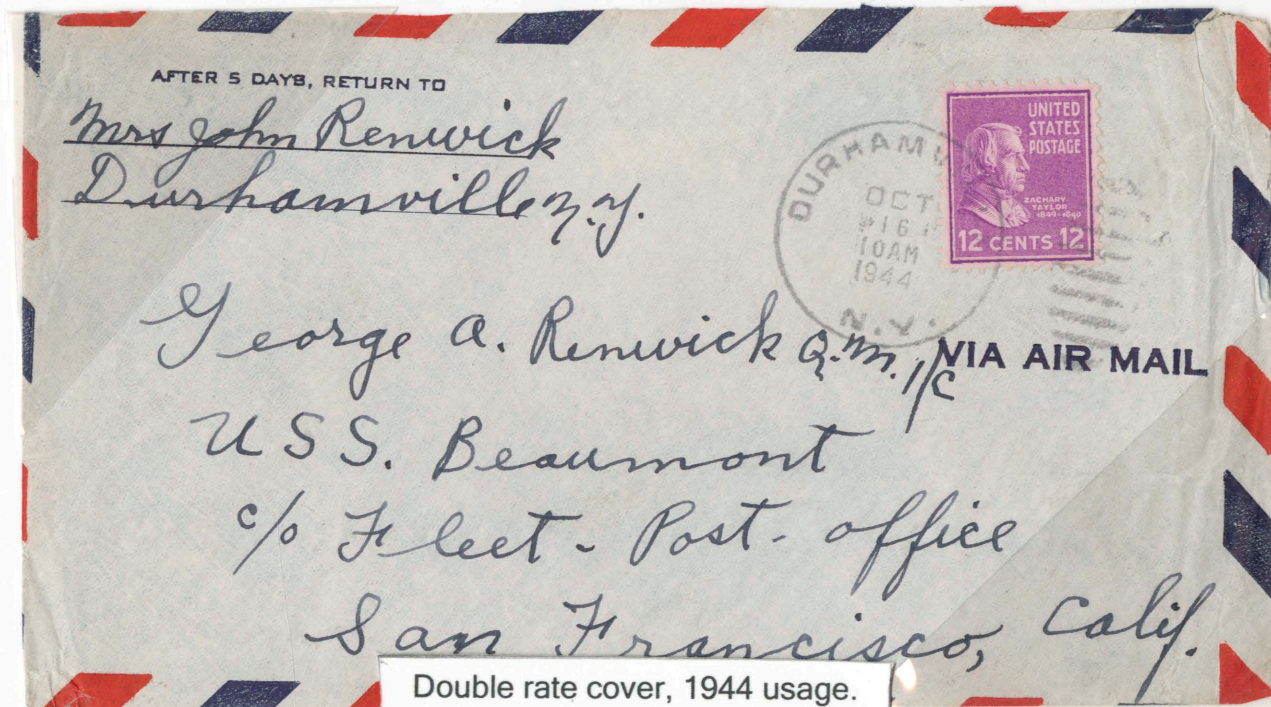 AFTER 5 DAYS, RETURN TO
Mrs John Renwick
Durhamville N.Y.
UNITED
STATES
POSTAGE
ZACHARY
TAYLOR
1849-1850
12 CENTS 12
OCT
16
10AM
1944
N.Y.
George A. Renwick Q.M. 1/c
VIA AIR MAIL
USS. Beaumont
c/o Fleet - Post - office
San Francisco, Calif.
Double rate cover, 1944 usage.